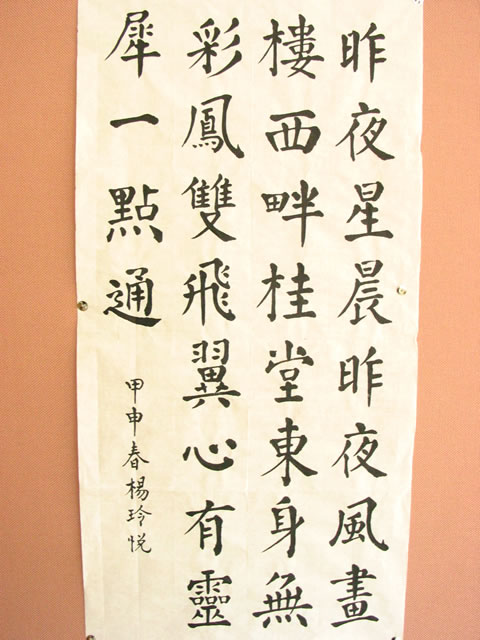 昨夜星晨昨夜風畫
樓西畔桂堂東身無
彩鳳雙飛翼心有靈
犀一點通
甲申春楊玲悅